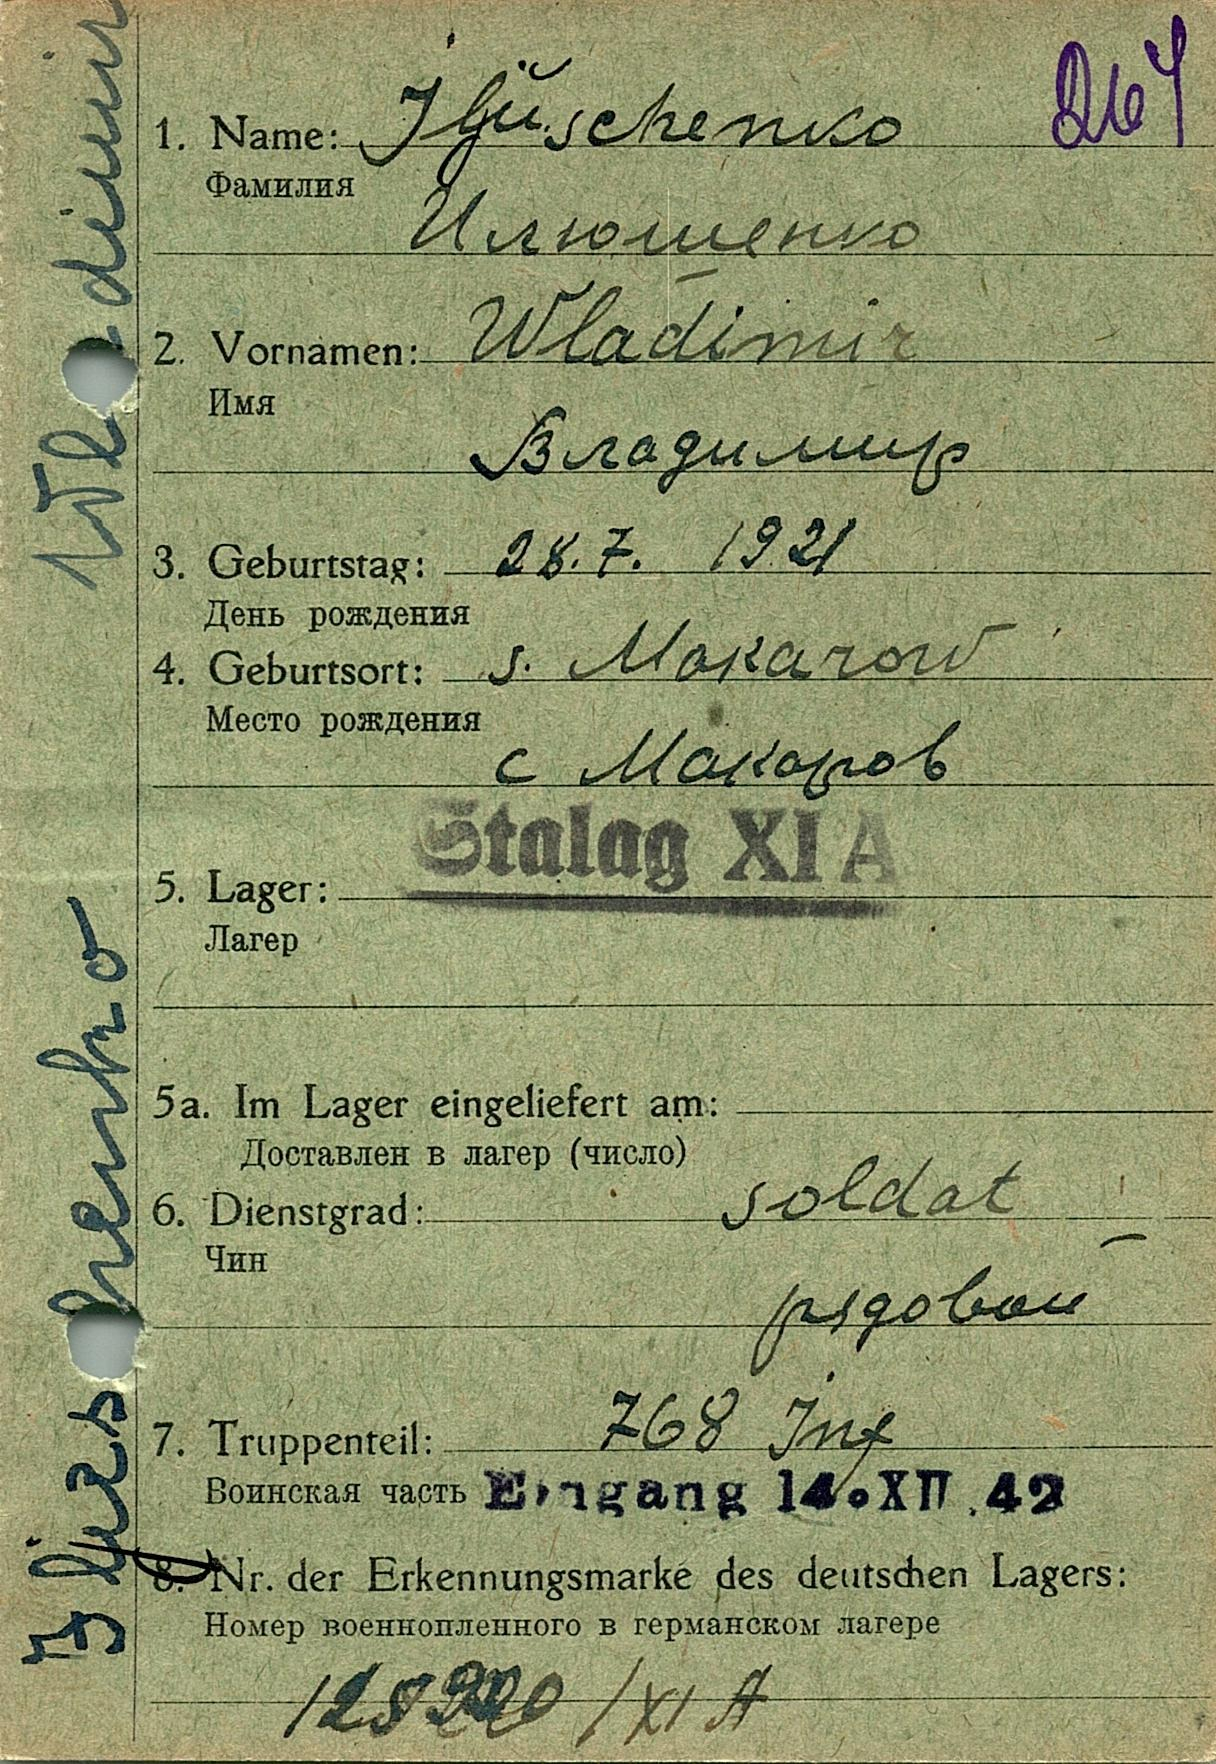 267
1. Name: Iljuschenko
Фамилия
Илюшенко
2. Vornamen: Wladimir
Имя
Владимир
3. Geburtstag: 28.7. 1921
День рождения
4. Geburtsort: s. Makarow
Место рождения
с Макаров
Stalag XI A
5. Lager:
Лагер
5a. Im Lager eingeliefert am:
Доставлен в лагер (число)
6. Dienstgrad: soldat
Чин
рядовой
7. Truppenteil: 768 Inf
Воинская часть Eingang 14.XII.42
8. Nr. der Erkennungsmarke des deutschen Lagers:
Номер военнопленного в германском лагере
/XI A
Wladimir